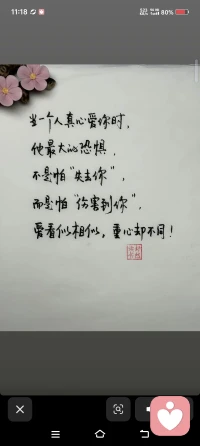 11:18
80%
当一个人真心爱你时，
他最大的恐惧，
不是怕“失去你”，
而是怕“伤害到你”，
爱看似相似，重心却不同！